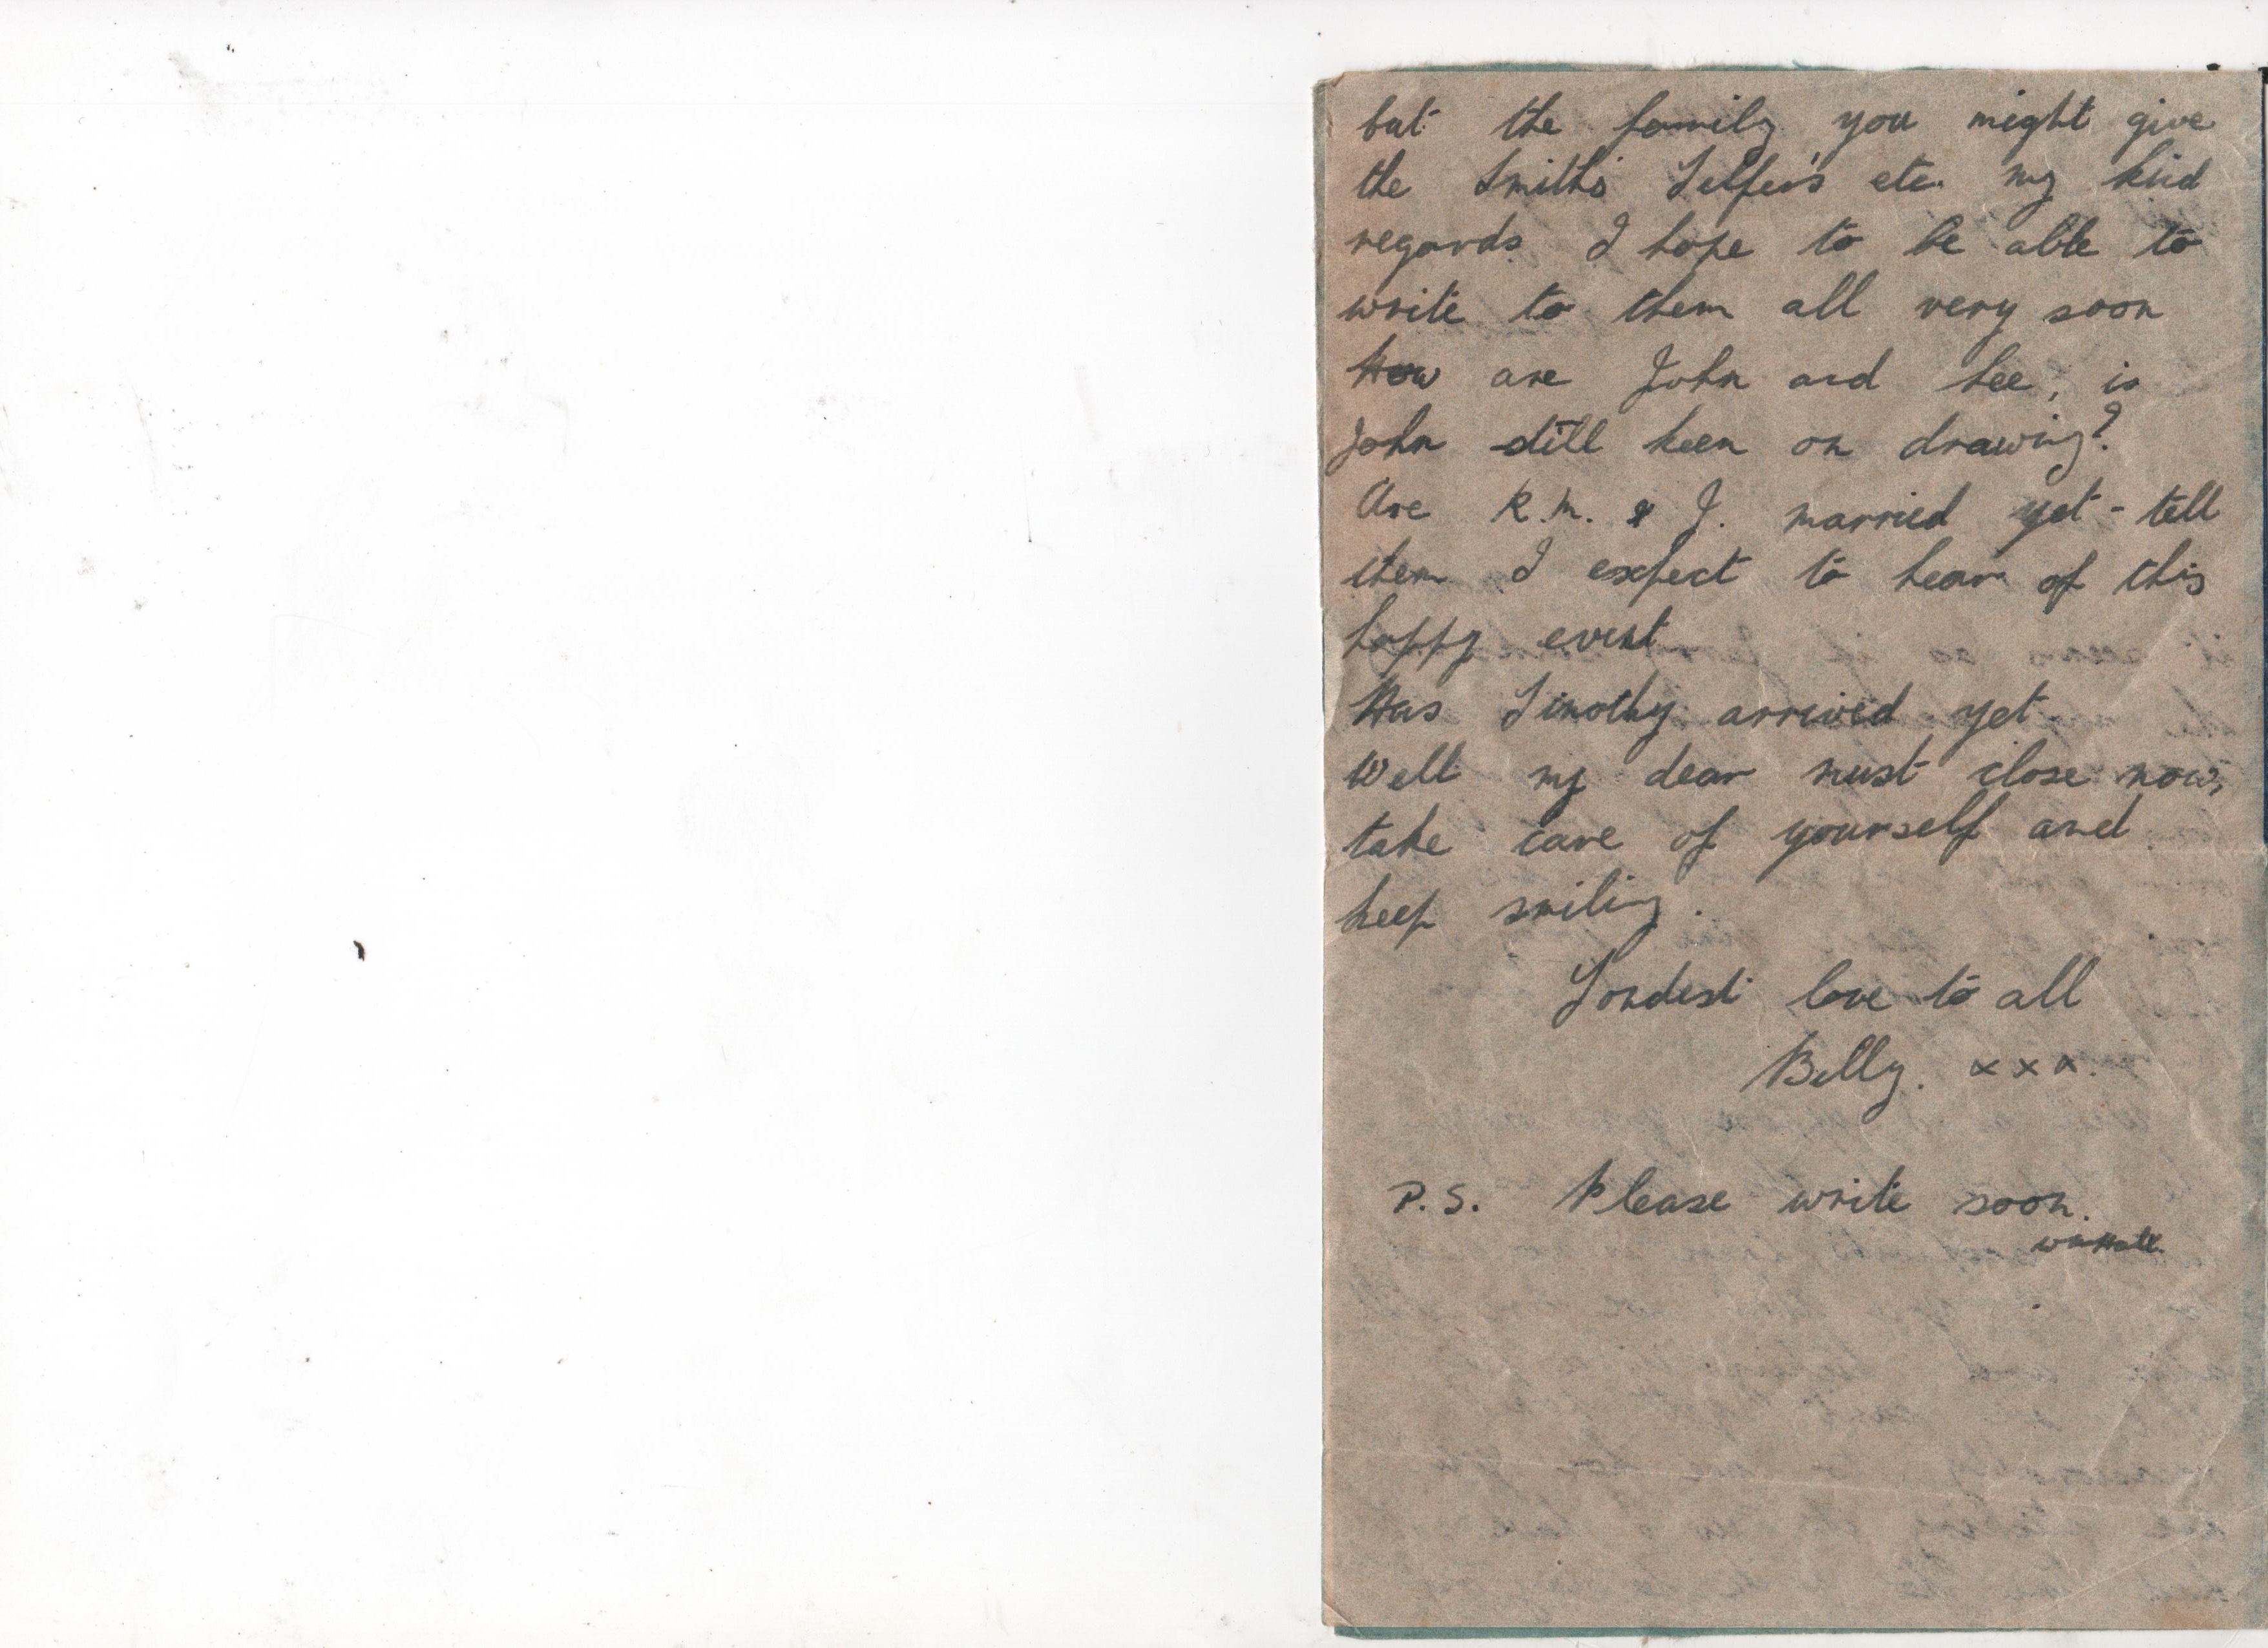 but the family you might give
the Smith's Telfer's etc. my kind
regards. I hope to be able to
write to them all very soon
How are John and Lee, is
John still keen on drawing?
Are R.M. & J. married yet - tell
them I expect to hear of this
happy event
Has Timothy arrived yet.
Well my dear must close now,
take care of yourself and
keep smiling.
Fondest love to all
Billy. x x x.
P.S. Please write soon.